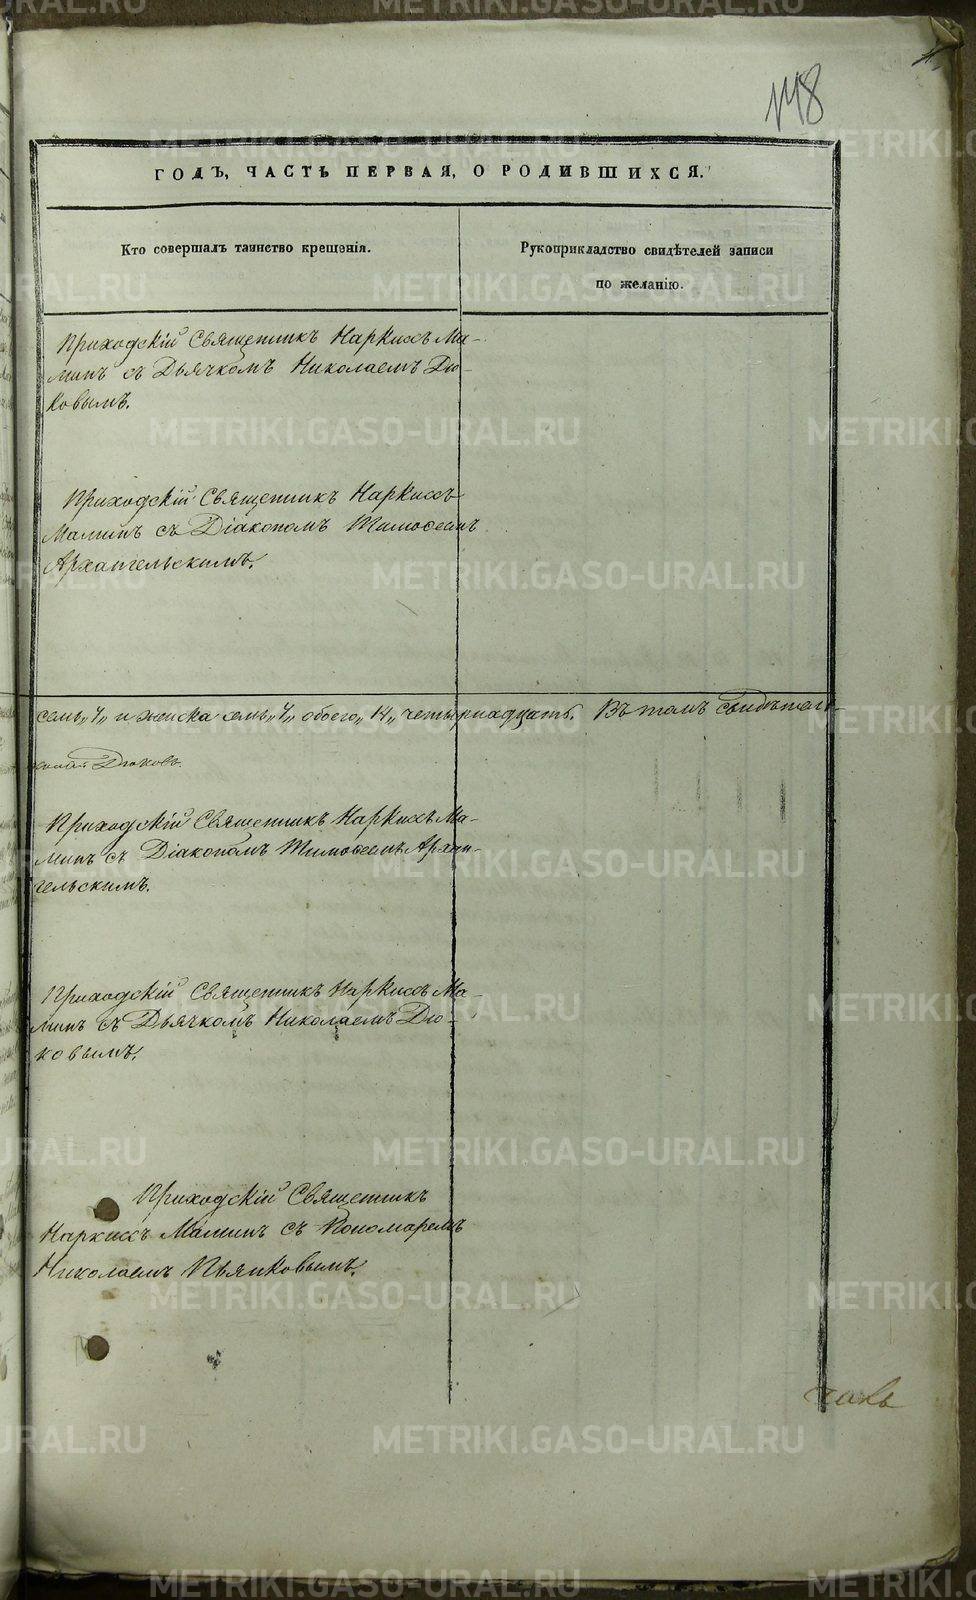 148
ГОДЪ, ЧАСТЬ ПЕРВАЯ, О РОДИВШИХСЯ.
Кто совершалъ таинство крещенія.
Рукоприкладство свидѣтелей записи
по желанію.
Приходскій Священникъ Наркиссъ Ма-
минъ съ Дьячкомъ Николаемъ Дю-
ковымъ.
Приходскій Священникъ Наркиссъ
Маминъ съ Діакономъ Тимоѳеемъ
Архангельскимъ.
семь „7„ и женска семь „7„ обоего „14„ четырнадцать. Въ томъ свидѣтель-
колай Дюковъ.
Приходскій Священникъ Наркиссъ Ма-
минъ съ Діакономъ Тимоѳеемъ Архан-
гельскимъ.
Приходскій Священникъ Наркиссъ Ма-
минъ съ Дьячкомъ Николаемъ Дю-
ковымъ.
Приходскій Священникъ
Наркиссъ Маминъ съ Пономаремъ
Николаемъ Пьянковымъ.
METRIKI.GASO-URAL.RU